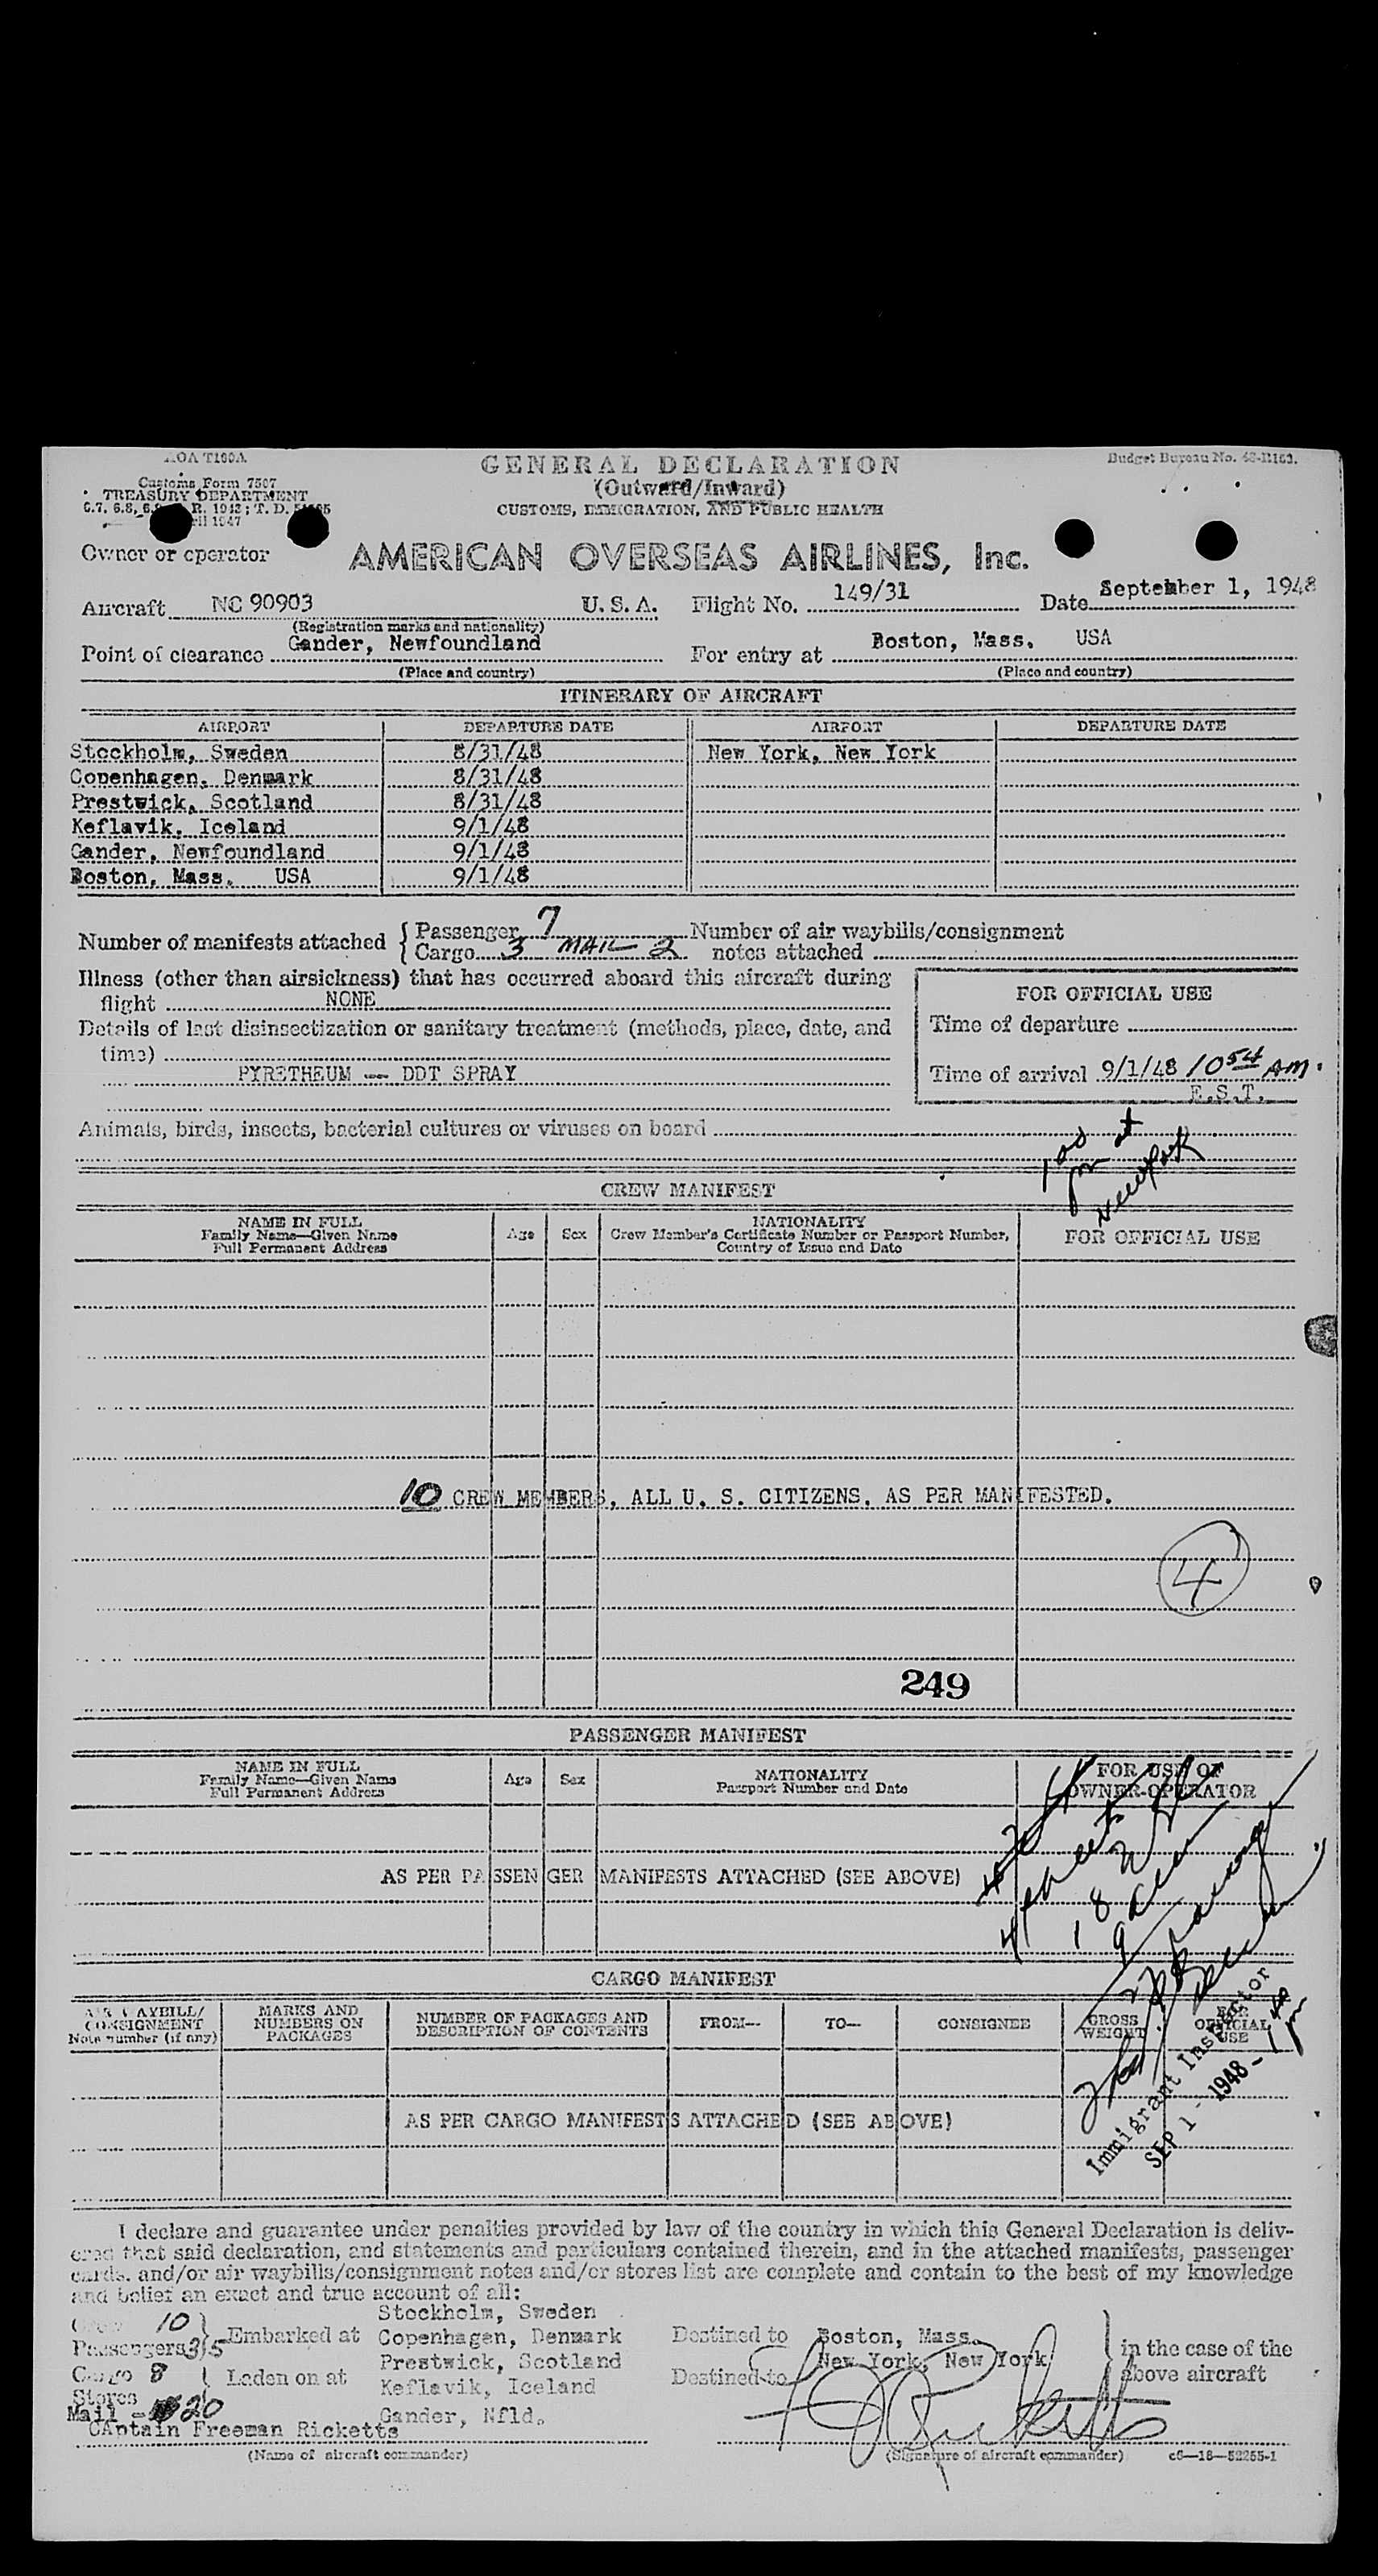 AOA T100A
GENERAL DECLARATION
Budget Bureau No.
Customs Form 7507
(Outward/Inward)
TREASURY DEPARTMENT
CUSTOMS, IMMIGRATION, AND PUBLIC HEALTH
Owner or operator AMERICAN OVERSEAS AIRLINES, Inc.
Aircraft NC 90903 U. S. A. Flight No. 149/31 Date September 1, 1948
(Registration marks and nationality)
Point of clearance Gander, Newfoundland For entry at Boston, Mass. USA
(Place and country) (Place and country)
ITINERARY OF AIRCRAFT
AIRPORT DEPARTURE DATE AIRPORT DEPARTURE DATE
Stockholm, Sweden 8/31/48 New York, New York
Copenhagen, Denmark 8/31/48
Prestwick, Scotland 8/31/48
Keflavik, Iceland 9/1/48
Gander, Newfoundland 9/1/48
Boston, Mass. USA 9/1/48
Number of manifests attached { Passenger 7 Number of air waybills/consignment
Cargo 3 MAIL 2 notes attached
Illness (other than airsickness) that has occurred aboard this aircraft during
flight NONE
Details of last disinsectization or sanitary treatment (methods, place, date, and
time)
PYRETHEUM -- DDT SPRAY
FOR OFFICIAL USE
Time of departure
Time of arrival 9/1/48 10 54 AM.
E.S.T.
Animals, birds, insects, bacterial cultures or viruses on board
1 00 pm at
New York
CREW MANIFEST
NAME IN FULL
Family Name—Given Name
Full Permanent Address
Age Sex
NATIONALITY
Crew Member's Certificate Number or Passport Number,
Country of Issue and Date
FOR OFFICIAL USE
10 CREW MEMBERS, ALL U. S. CITIZENS. AS PER MANIFESTED.
4
249
PASSENGER MANIFEST
NAME IN FULL
Family Name—Given Name
Full Permanent Address
Age Sex
NATIONALITY
Passport Number and Date
FOR USE OF
OWNER-OPERATOR
AS PER PASSENGER MANIFESTS ATTACHED (SEE ABOVE)
4 sheets
18
9
CARGO MANIFEST
AIR WAYBILL/
CONSIGNMENT
Note number (if any)
MARKS AND
NUMBERS ON
PACKAGES
NUMBER OF PACKAGES AND
DESCRIPTION OF CONTENTS
FROM—
TO—
CONSIGNEE
GROSS
WEIGHT
FOR
OFFICIAL
USE
Immigrant Inspector
SEP 1 - 1948
AS PER CARGO MANIFESTS ATTACHED (SEE ABOVE)
I declare and guarantee under penalties provided by law of the country in which this General Declaration is deliv-
ered that said declaration, and statements and particulars contained therein, and in the attached manifests, passenger
cards, and/or air waybills/consignment notes and/or stores list are complete and contain to the best of my knowledge
and belief an exact and true account of all:
Crew 10
Passengers 35
Cargo 8
Stores
Mail - 20
Embarked at
Laden on at
Stockholm, Sweden
Copenhagen, Denmark
Prestwick, Scotland
Keflavik, Iceland
Gander, Nfld.
Destined to Boston, Mass.
New York, New York
Destined to
in the case of the
above aircraft
CAptain Freeman Ricketts
(Name of aircraft commander)
(Signature of aircraft commander)
c6—16—52255-1